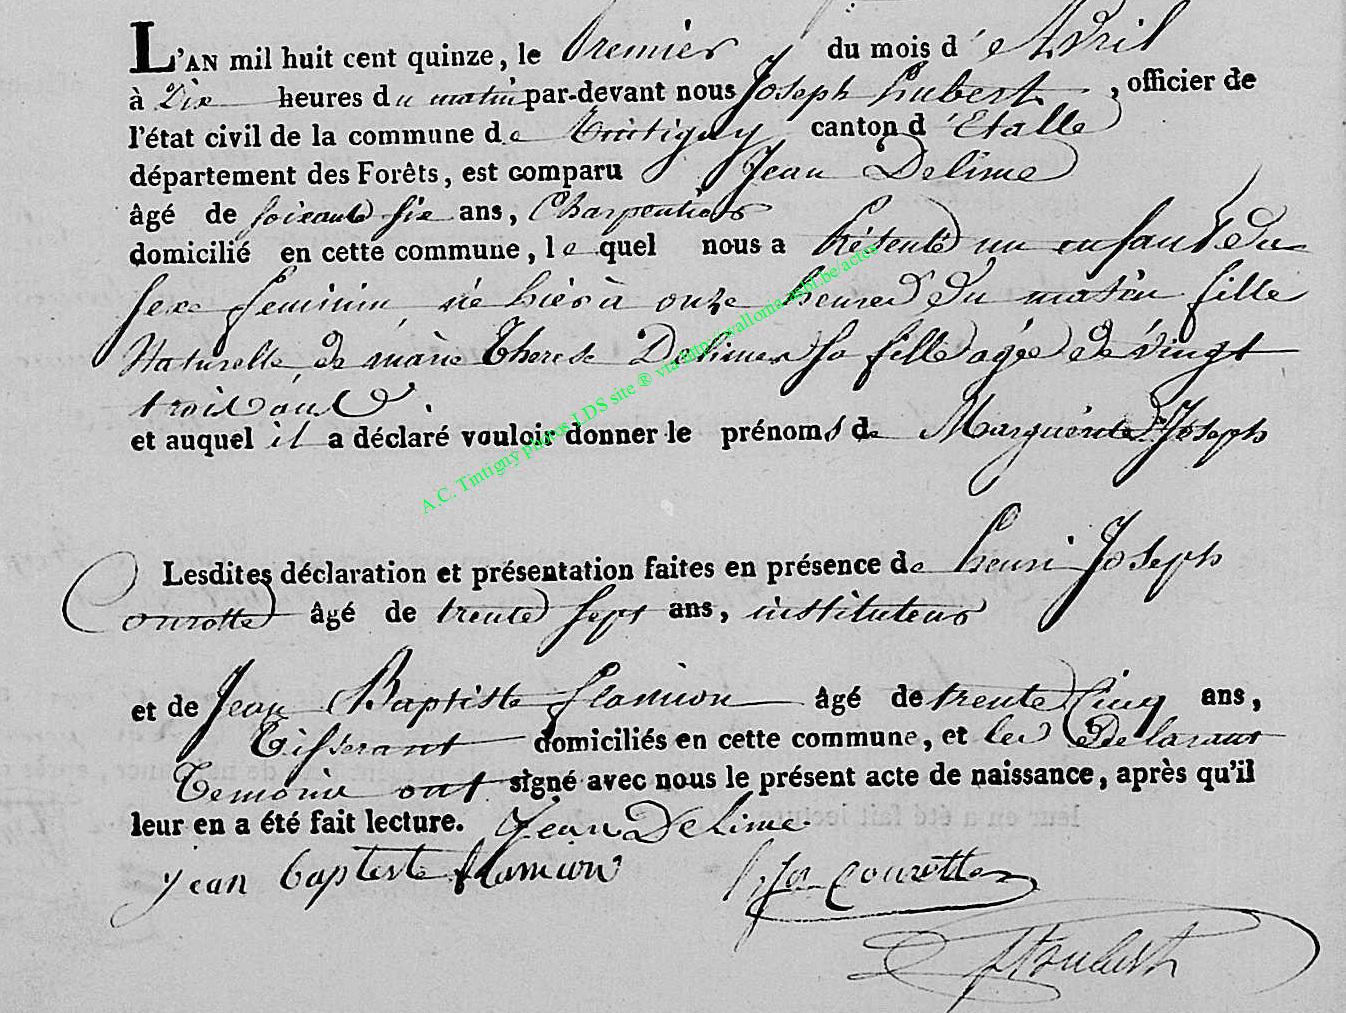 L'AN mil huit cent quinze, le Premier du mois d'Avril
à Dix heures du matin par-devant nous Joseph hubert, officier de
l'état civil de la commune de Tintigny canton d'Etalle
département des Forêts, est comparu Jean Delime
âgé de soixante six ans, Charpentier
domicilié en cette commune, lequel nous a Présenté un enfant du
sexe feminin, né hier à onze heures du matin fille
Naturelle de marie Therese Delime sa fille agée de vingt
trois ans.
et auquel il a déclaré vouloir donner le prénoms de Marguerite Joseph
Lesdites déclaration et présentation faites en présence de henri Joseph
Courotte âgé de trente sept ans, instituteur
et de Jean Baptiste flamion âgé de trente Cinq ans,
Tisserant domiciliés en cette commune, et les Declarant
Temoins ont signé avec nous le présent acte de naissance, après qu'il
leur en a été fait lecture. Jean Delime
jean baptiste flamion h j courotte
J Houbert
A.C. Tintigny photos LDS site ® via http://wallonia.asbl.be/actes